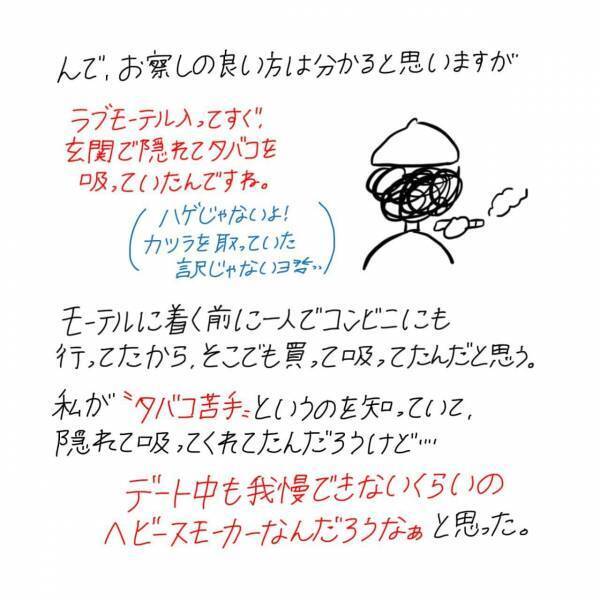 んで、お察しの良い方は分かると思いますが
ラブモーテル入ってすぐ、
玄関で隠れてタバコを
吸っていたんですね。
(ハゲじゃないよ!
カツラを取っていた
訳じゃないヨ
モーテルに着く前に一人でコンビニにも
行ってたから、そこでも買って吸ってたんだと思う。
私が〝タバコ苦手〟というのを知っていて、
隠れて吸ってくれてたんだろうけど….
デート中も我慢できないくらいの
ヘビースモーカーなんだろうなぁ と思った。